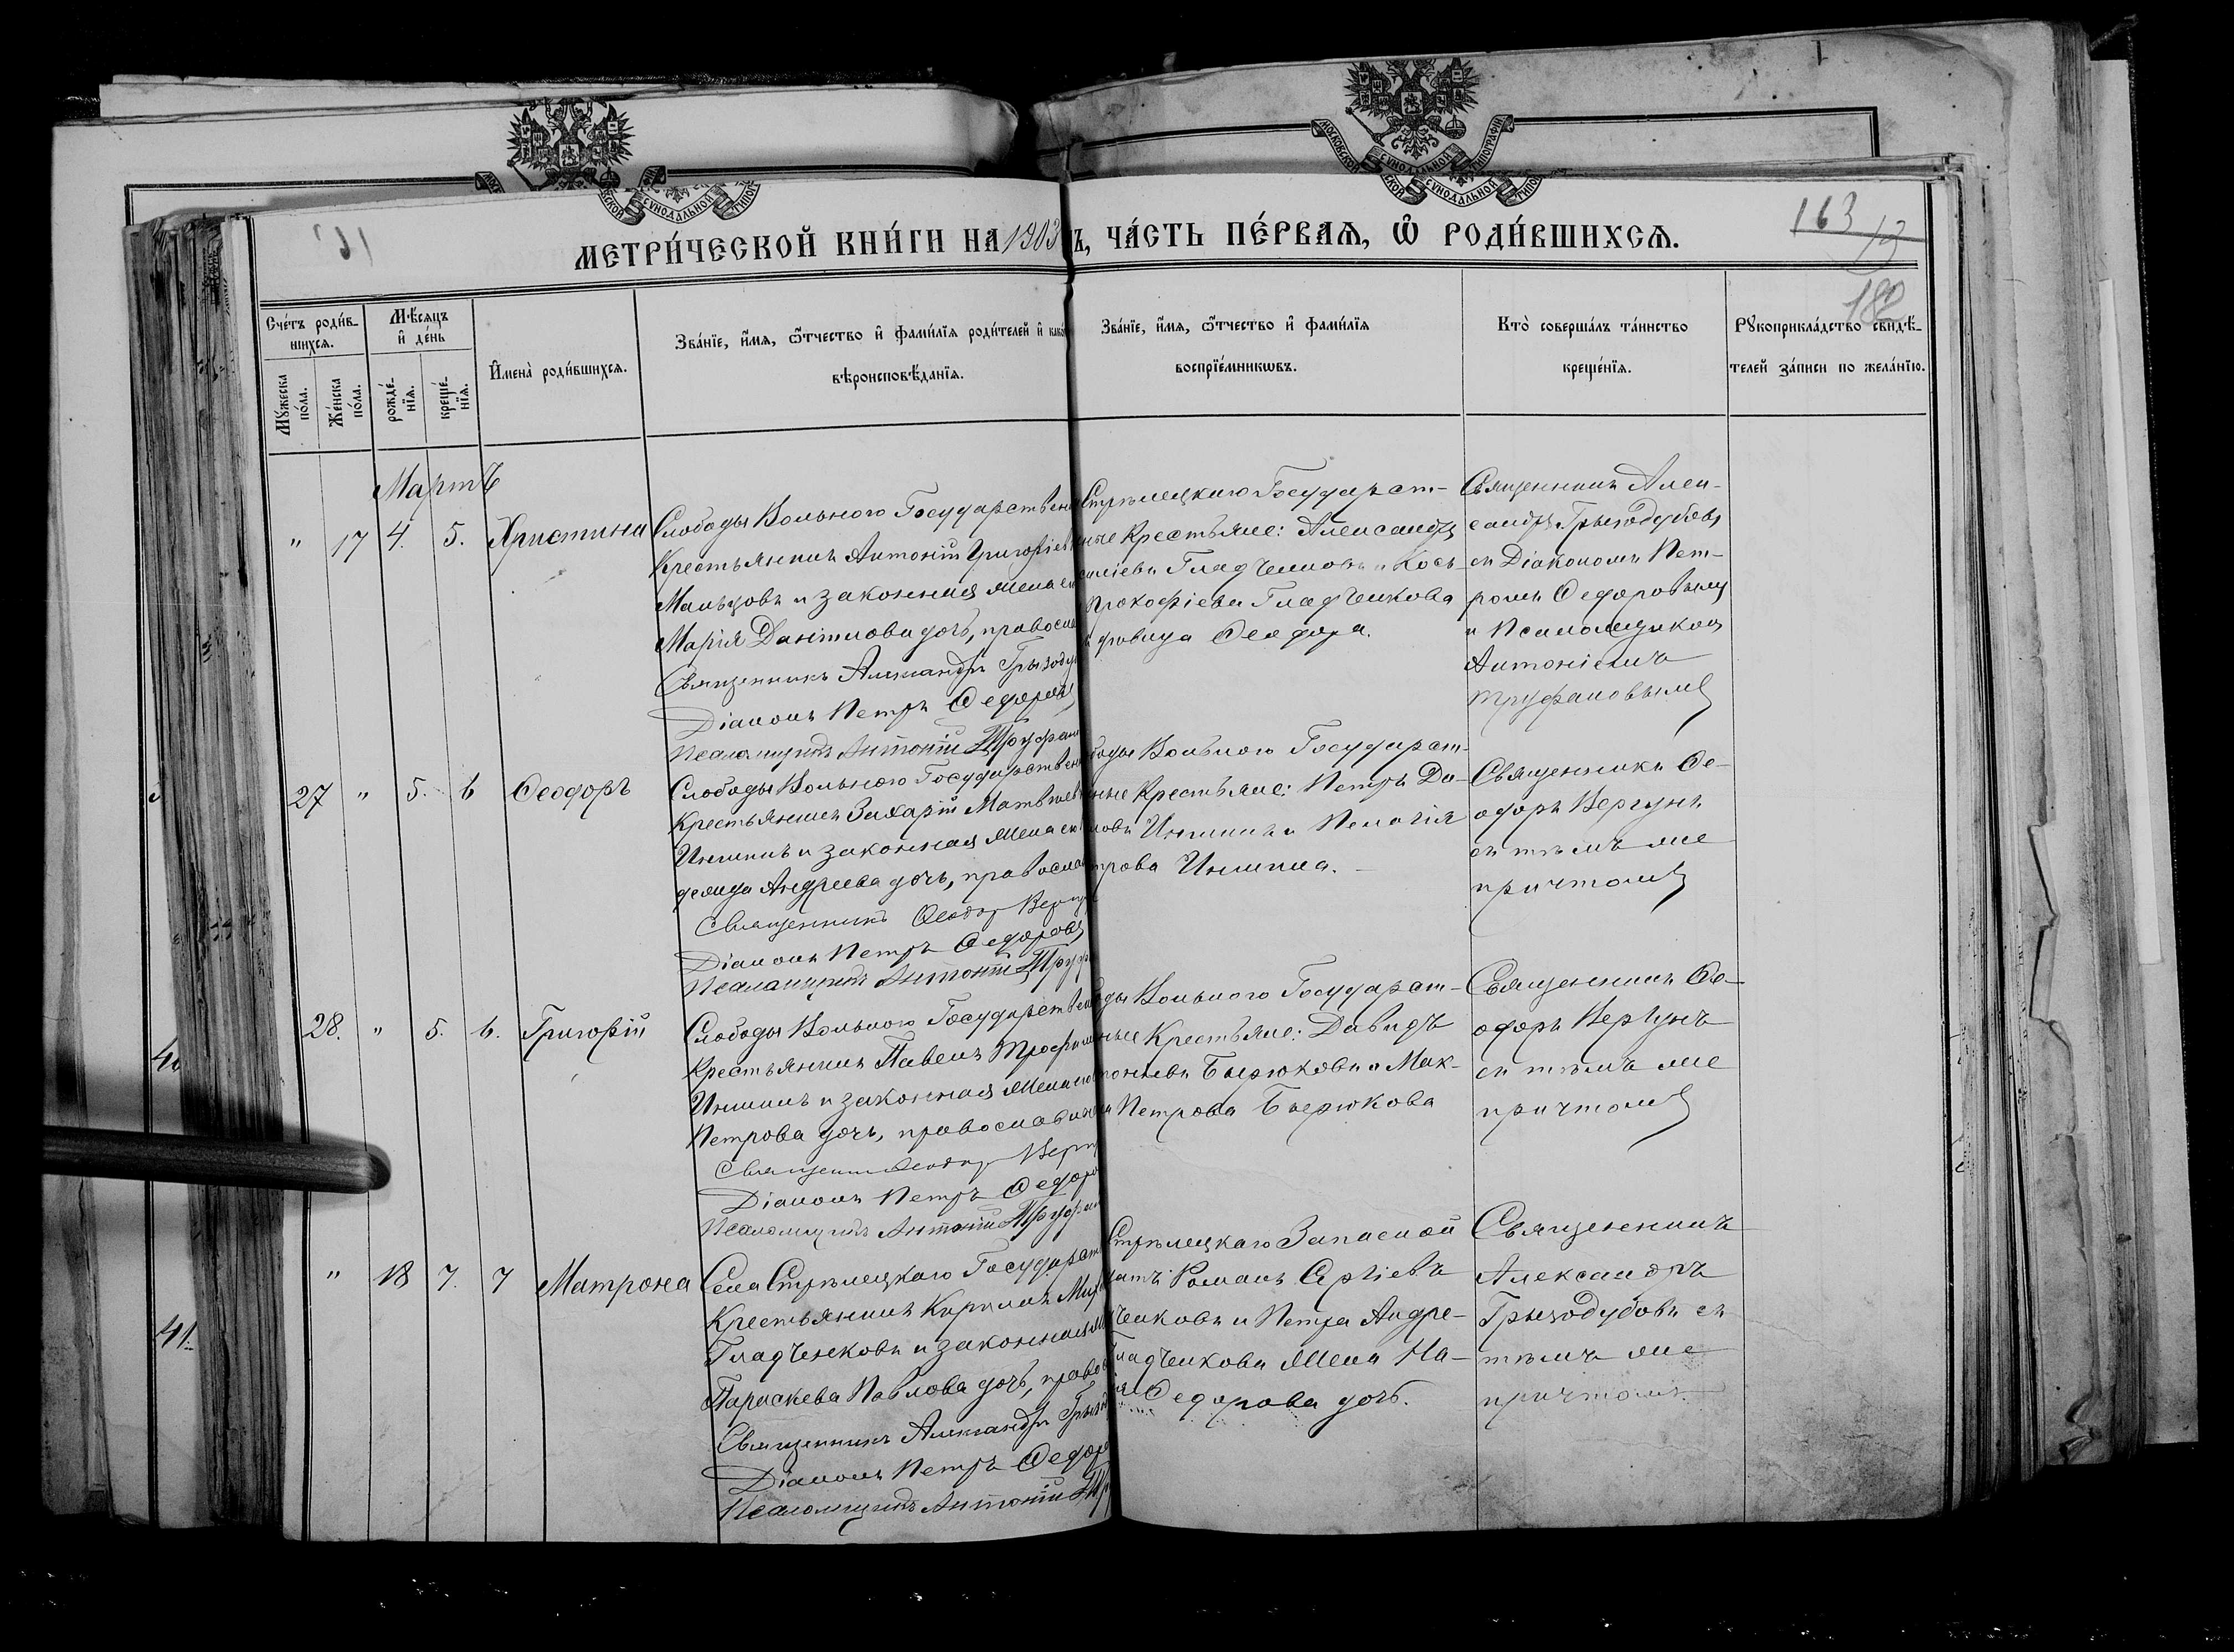 МОСКОВСКОЙ СѴНОДАЛЬНОЙ ТИПОГРАФІИ
СѴНОДАЛЬНОЙ
163
19
182
МЕТРИ́ЧЕСКОЙ КНИ́ГИ НА 1903 Ъ, ЧА́СТЬ ПЕ́РВАѦ, Ѡ҆ РОДИ́ВШИХСѦ.
Сче́тъ роди́в-
шихсѧ.
Мꙋ́жеска по́ла.
Же́нска по́ла.
Мѣ́сѧцъ и҆ де́нь
рожде́-нїѧ.
креще́-нїѧ.
И҆мена̀ роди́вшихсѧ.
Зва́нїе, и҆́мѧ, ѻ҆́тчество и҆ фами́лїѧ роди́телей и҆
вѣроисповѣ́данїѧ.
Зва́нїе, и҆́мѧ, ѻ҆́тчество и҆ фами́лїѧ
воспрїе́мникѡвъ.
Кто̀ соверша́лъ та́инство
креще́нїѧ.
Рꙋкоприкла́дство свидѣ́-
телей за́писи по жела́нїю.
Мартъ
" 17 4. 5. Христина
Слободы Вольного Государствен
Крестьянинъ Антоній Григоріев
Мальцовъ и законная жена
Марія Даніилова дочь, правосл
Священникъ Александръ Грызоду
Діаконъ Петръ Ѳедоровъ
Псаломщикъ Антоній Труфан
Стрѣлецкаго Государст-
ные Крестьяне: Александръ
силіевъ Гладченковъ и
Прокофіева Гладченкова
дѣвица Ѳеодора.
Священникъ Алек-
сандръ Грызодубовъ
съ Діакономъ Пет-
ромъ Ѳедоровымъ
и Псаломщикомъ
Антоніемъ
Труфановымъ
27 " 5. 6 Ѳеодоръ
Слободы Вольного Государствен
Крестьянинъ Захарій Матвѣев
и законная жена
Андреева дочь, правосла
Священникъ Ѳеодоръ Вергун
Діаконъ Петръ Ѳедоровъ
Псаломщикъ Антоній Труф
боды Вольного Государст-
ные Крестьяне: Петръ
и Пелагія
трова
Священникъ Ѳе-
одоръ Вергунъ
съ тѣмъ же
причтомъ
28. " 5. 6. Григорій
Слободы Вольного Государствен
Крестьянинъ Павелъ Трофим
и законная жена
Петрова дочь, православн
Священникъ Ѳеодоръ Верг
Діаконъ Петръ Ѳедоро
Псаломщикъ Антоній Труфан
оды Вольного Государст-
ные Крестьяне: Давидъ
Бирюковъ и Мак-
Петрова Бирюкова
Священникъ Ѳе-
одоръ Вергунъ
съ тѣмъ же
причтомъ
" 18 7. 7 Матрона
Села Стрѣлецкаго Государст
Крестьянинъ Кириллъ
Гладченковъ и законная
Параскева Павлова дочь, право
Священникъ Александръ Грызод
Діаконъ Петръ Ѳедор
Псаломщикъ Антоній Тр
Стрѣлецкаго Запасной
датъ Романъ Сергіевъ
ченковъ и Петра Андре-
Гладченкова жена На-
Ѳедорова дочь.
Священникъ
Александръ
Грызодубовъ съ
тѣмъ же
причтомъ.
40
41.